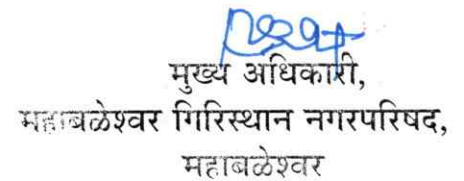 मुख्य अधिकारी,
महाबळेश्वर गिरिस्थान नगरपरिषद,
महाबळेश्वर